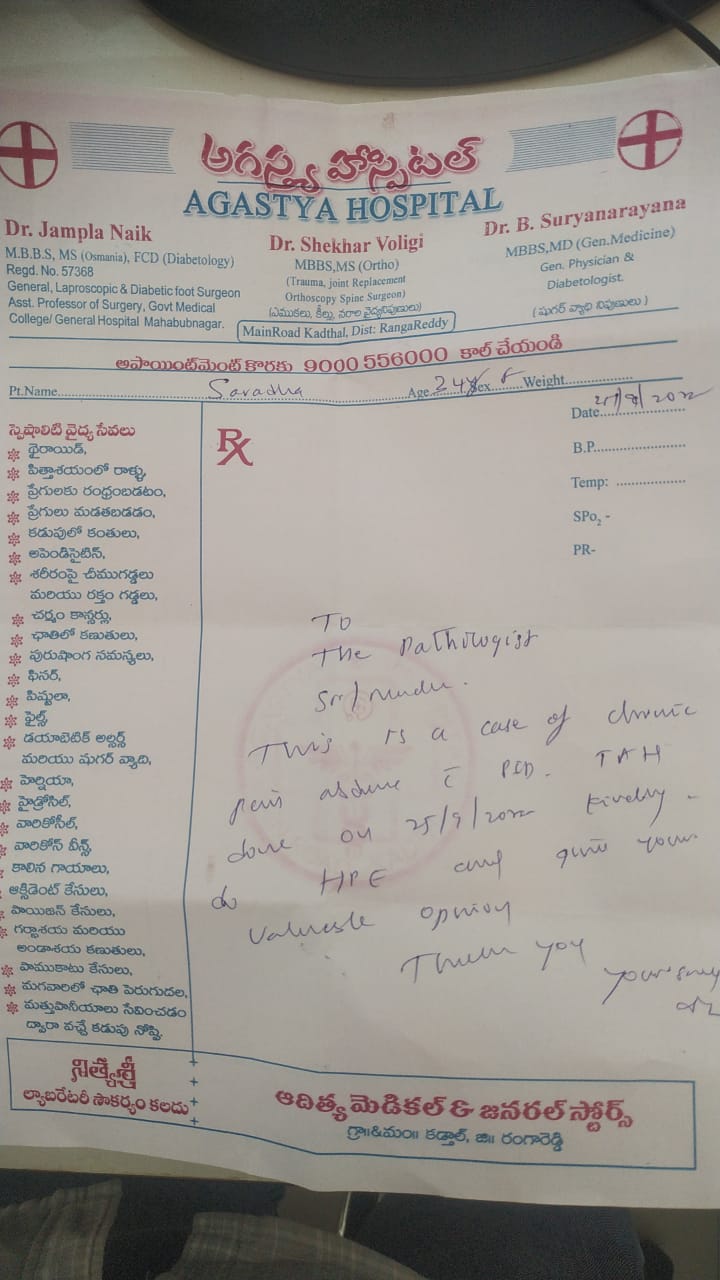 అగస్త్య హాస్పిటల్
AGASTYA HOSPITAL
Dr. Jampla Naik
M.B.B.S, MS (Osmania), FCD (Diabetology)
Regd. No. 57368
General, Laproscopic & Diabetic foot Surgeon
Asst. Professor of Surgery, Govt Medical
College/ General Hospital Mahabubnagar.
Dr. Shekhar Voligi
MBBS,MS (Ortho)
(Trauma, joint Replacement
Orthoscopy Spine Surgeon)
(ఎముకలు, కీళ్ళు, నరాల వైద్యనిపుణులు)
Dr. B. Suryanarayana
MBBS,MD (Gen.Medicine)
Gen. Physician &
Diabetologist.
(షుగర్ వ్యాధి నిపుణులు)
MainRoad Kadthal, Dist: RangaReddy
అపాయింట్‌మెంట్ కొరకు 9000 556000 కాల్ చేయండి
Pt.Name Saradha Age 34 Sex F Weight
Date
B.P.
Temp:
SPo2 -
PR-
Rx
స్పెషాలిటి వైద్య సేవలు
థైరాయిడ్,
పిత్తాశయంలో రాళ్ళు,
ప్రేగులకు రంధ్రంబడటం,
ప్రేగులు మడతబడడం,
కడుపులో కంతులు,
అపెండిసైటిస్,
శరీరంపై చీముగడ్డలు
మరియు రక్తం గడ్డలు,
చర్మం కాన్సర్లు,
ఛాతిలో కణుతులు,
పురుషాంగ సమస్యలు,
ఫిసర్,
పిష్టులా,
ఫైల్స్
డయాబెటిక్ అల్సర్స్
మరియు షుగర్ వ్యాది,
హెర్నియా,
హైడ్రోసిల్,
వారికోసీల్,
వారికోస్ వీన్స్,
కాలిన గాయాలు,
ఆక్సిడెంట్ కేసులు,
పాయిజన్ కేసులు,
గర్భాశయ మరియు
అండాశయ కణుతులు,
పాముకాటు కేసులు,
మగవారిలో ఛాతి పెరుగుదల,
మత్తుపానీయాలు సేవించడం
ద్వారా వచ్చే కడుపు నోప్పి.
To
The Pathologist
Sir/madam.
This is a case of chronic
pain c̄ PID. TAH
done on 25/9/2022 kindly
do HPE and give your
valuable opinion
Thank you
నిత్యశ్రీ
ల్యాబరేటరీ సౌకర్యం కలదు
ఆదిత్య మెడికల్ & జనరల్ స్టోర్స్
గ్రా॥&మం॥ కడ్తాల్, జి॥ రంగారెడ్డి